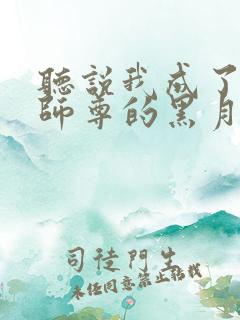 聽說我成了
師尊的黑月
司徒門生
未經同意禁止轉載